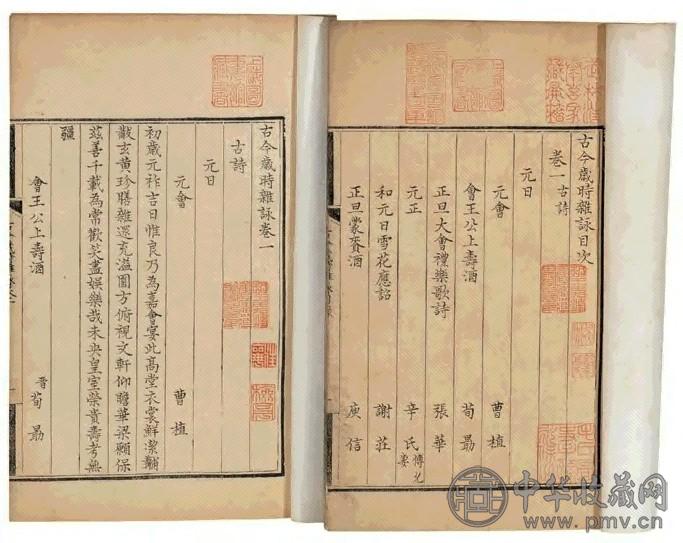 古今歲時雜詠目次
卷一 古詩
元日
元會 曹植
會王公上壽酒 荀勗
正旦大會禮樂歌詩 張華
元正 辛氏 傅允妻
和元日雪花應詔 謝莊
正旦蒙賚酒 庾信
古今歲時雜詠卷一
古詩
元日
元會 曹植
初歲元祚吉日惟良乃為嘉會宴此高堂衣裳鮮潔黼
黻玄黃珍膳雜遝充溢圓方俯視文軒仰瞻華梁願保
茲善千載為常歡笑盡娛樂哉未央皇室榮貴壽考無
疆
會王公上壽酒 晉荀勗
中华收藏网
www.pmv.cn